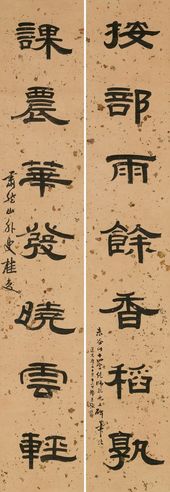 按部雨餘香稻孰
課農華發曉雲輕
蕭然山外史桂馥